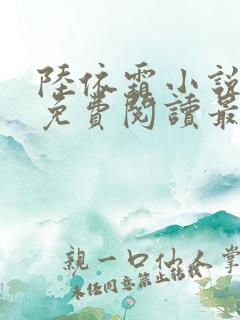 陸依霜小說
免費閱讀最
親一口仙人掌
未经同意禁止转载